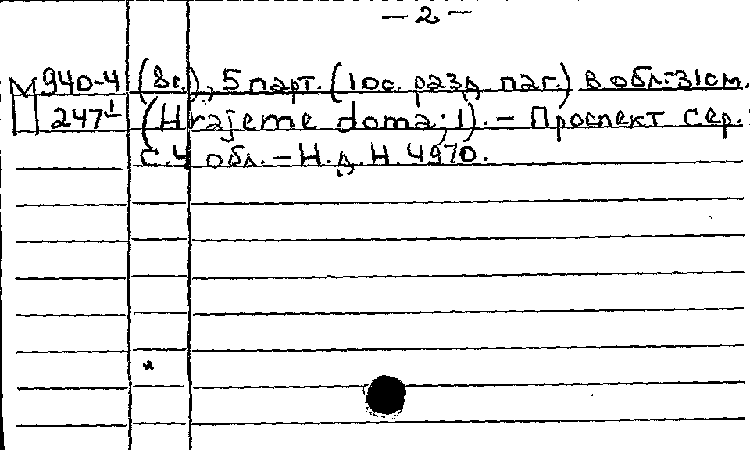 — 2 —
М 940-4 (8с.), 5 парт. (10с. разд. паг.) в обл. 31см.
Ц 247¹ (Hrajeme doma; 1). – Проспект сер.:
с. 4 обл. – Н. д. Н. 4970.